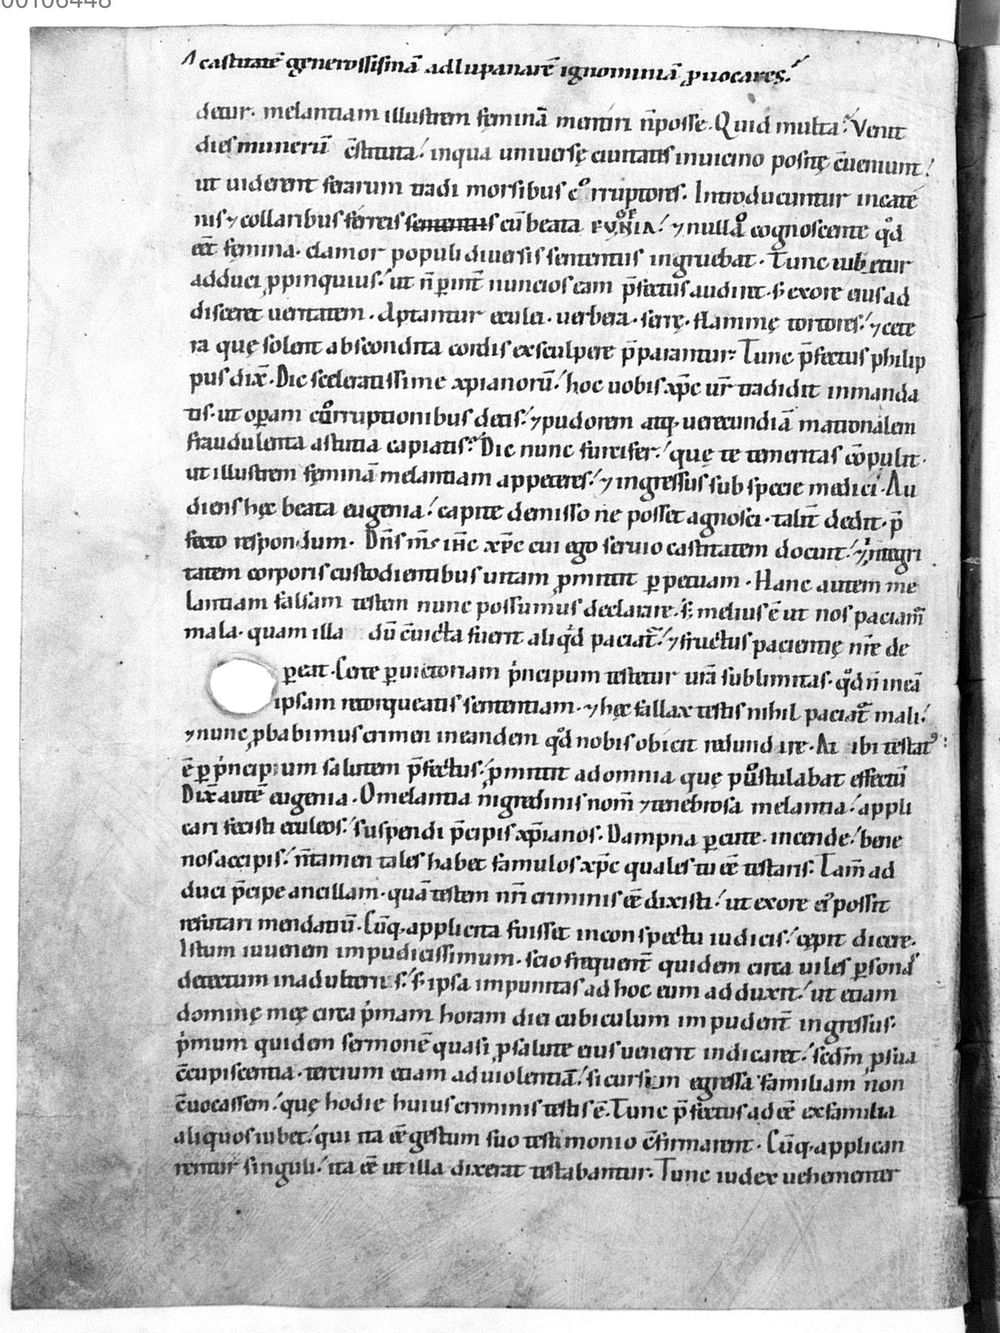 00106448
A castitatē generossisimā ad lupanarē ignominiā ꝓuocares.
detur. melantiam illustrem feminā mentiri n̄ posse. Quid multa? Venit
dies munerū c̄stituta. in qua uniuersę ciuitatis in uicino positę c̄ueniunt.
ut uiderent ferarum tradi morsibus corruptores. Introducuntur in caté
nis ⁊ collaribus ferreis sententiis cū beata EVGENIA. ⁊ nullo cognoscente qd̓
eēt femina. clamor populi diuersis sententiis ingruebat. Tunc iubetur
adduci ꝓpinquius. ut n̄ ꝑ int̄ nuncios eam p̄fectus audiret. s; ex ore eius ad
disceret ueritatem. Aptantur eculei. uerbera. serrę. flammę tortores. ⁊ cete
ra quę solent abscondita cordis exsculpere p̄parantur. Tunc p̄fectus philip
pus dix̄. Dic sceleratissime xp̄ianorū. hoc uobis xp̄c ur̄ tradidit in manda
tis. ut oꝑam corruptionibus detis. ⁊ pudorem atq; uerecundiā matronalem
fraudulenta astutia capiatis? Dic nunc furcifer. quę te temeritas cōpulit.
ut illustrem feminā melantiam appeteres. ⁊ ingressus sub specie medici. Au
diens hęc beata eugenia. capite demisso ne posset agnosci. talit̄ dedit. p̄
fecto respondum. Dn̄s m̄s ih̄c xp̄c cui ego seruio castitatem docuit. ⁊ integri
tatem corporis custodientibus uitam ꝓmittit ꝑpetuam. Hanc autem me
lantiam falsam testem nunc possumus declarare. S; melius ē ut nos paciam̄
mala. quam illa dū c̄uicta fuerit aliqd̓ paciat̄. ⁊ fructus pacientię nr̄e de
pereat. Cete ꝑ uictoriam principum testetur ura sublimitas. qd̓ n̄ in eā
ipsam retorqueatis sententiam. ⁊ hęc fallax testis nihil paciat̄ mali.
⁊ nunc ꝓbabimus crimen in eandem qd̓ nobis obicit redundare. At ubi testat᷒
ē ꝑ principium salutem p̄fectus. ꝓmittit ad omnia quę postulabat effectū
Dix̄ autē eugenia. O melantia nigredinis nom̄ ⁊ tenebrosa melantia. appli
cari fecisti eculeos. suspendi p̄cipis xp̄ianos. Dampna ꝑcute. incende. bene
nos accipis. n̄ tamen tales habet famulos xp̄c quales tu eē testaris. Tam̄ ad
duci p̄cipe ancillam. quā testem nr̄i criminis eē dixisti. ut ex ore ei᷒ possit
refutari mendatiū. Cūq; applicita fuisset in conspectu iudicis. cępit dicere.
Istum iuuenem impudicissimum. scio frequent̄ quidem circa uiles ꝑsonas
detectum in adulteriis. s; ipsa impunitas ad hoc eum adduxit. ut etiam
dominę meę circa p̄mam horam diei cubiculum impudent̄ ingressus.
p̄mum quidem sermonē quasi ꝓ salute eius uenerit indicaret. sed m̄ ꝓ sua
c̄cupiscentia. tercium etiam ad uiolentiā. si cursim egressa familiam non
c̄uocassem. quę hodie huius criminis testis ē. Tunc p̄fectus ad eē ex familia
aliquos iubet. qui ita eē gestum suo testimonio c̄firmarent. Cūq; applican
rentur singuli. ita eē ut illa dixerat testabantur. Tunc iudex uehementer